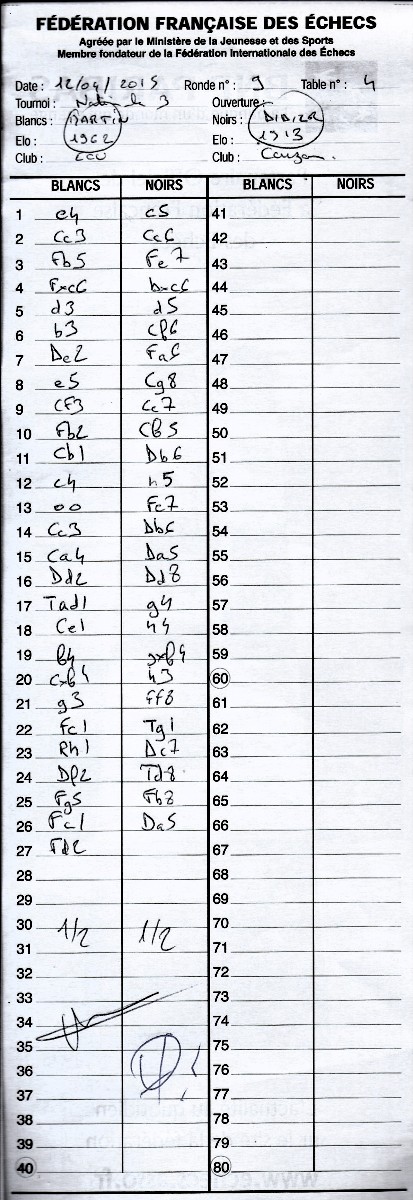 FÉDÉRATION FRANÇAISE DES ÉCHECS
Agréée par le Ministère de la Jeunesse et des Sports
Membre fondateur de la Fédération Internationale des Échecs
Date : 12/04/2015 Ronde n° : 9 Table n° : 4
Tournoi : Nationale 3 Ouverture :
Blancs : MARTIN Noirs : DIDIER
Elo : 1962 Elo : 1913
Club : Club :
BLANCS NOIRS BLANCS NOIRS
1 e4 c5 41
2 Cc3 Cc6 42
3 Fb5 Fe7 43
4 Fxc6 bxc6 44
5 d3 d5 45
6 b3 Cf6 46
7 De2 Fa6 47
8 e5 Cg8 48
9 Cf3 Ce7 49
10 Fb2 Cf5 50
11 Cb1 Db6 51
12 c4 h5 52
13 00 Fe7 53
14 Cc3 Db6 54
15 Ca4 Da5 55
16 Dd2 Dd8 56
17 Tad1 g4 57
18 Ce1 h4 58
19 f4 gxf4 59
20 Cxf4 h3 60
21 g3 Ff8 61
22 Fc1 Tg1 62
23 Rh1 Dc7 63
24 Df2 Td8 64
25 Fg5 Fb8 65
26 Fc1 Da5 66
27 Fd2 67
28 68
29 69
30 1/2 1/2 70
31 71
32 72
33 73
34 74
35 75
36 76
37 77
38 78
39 79
40 80